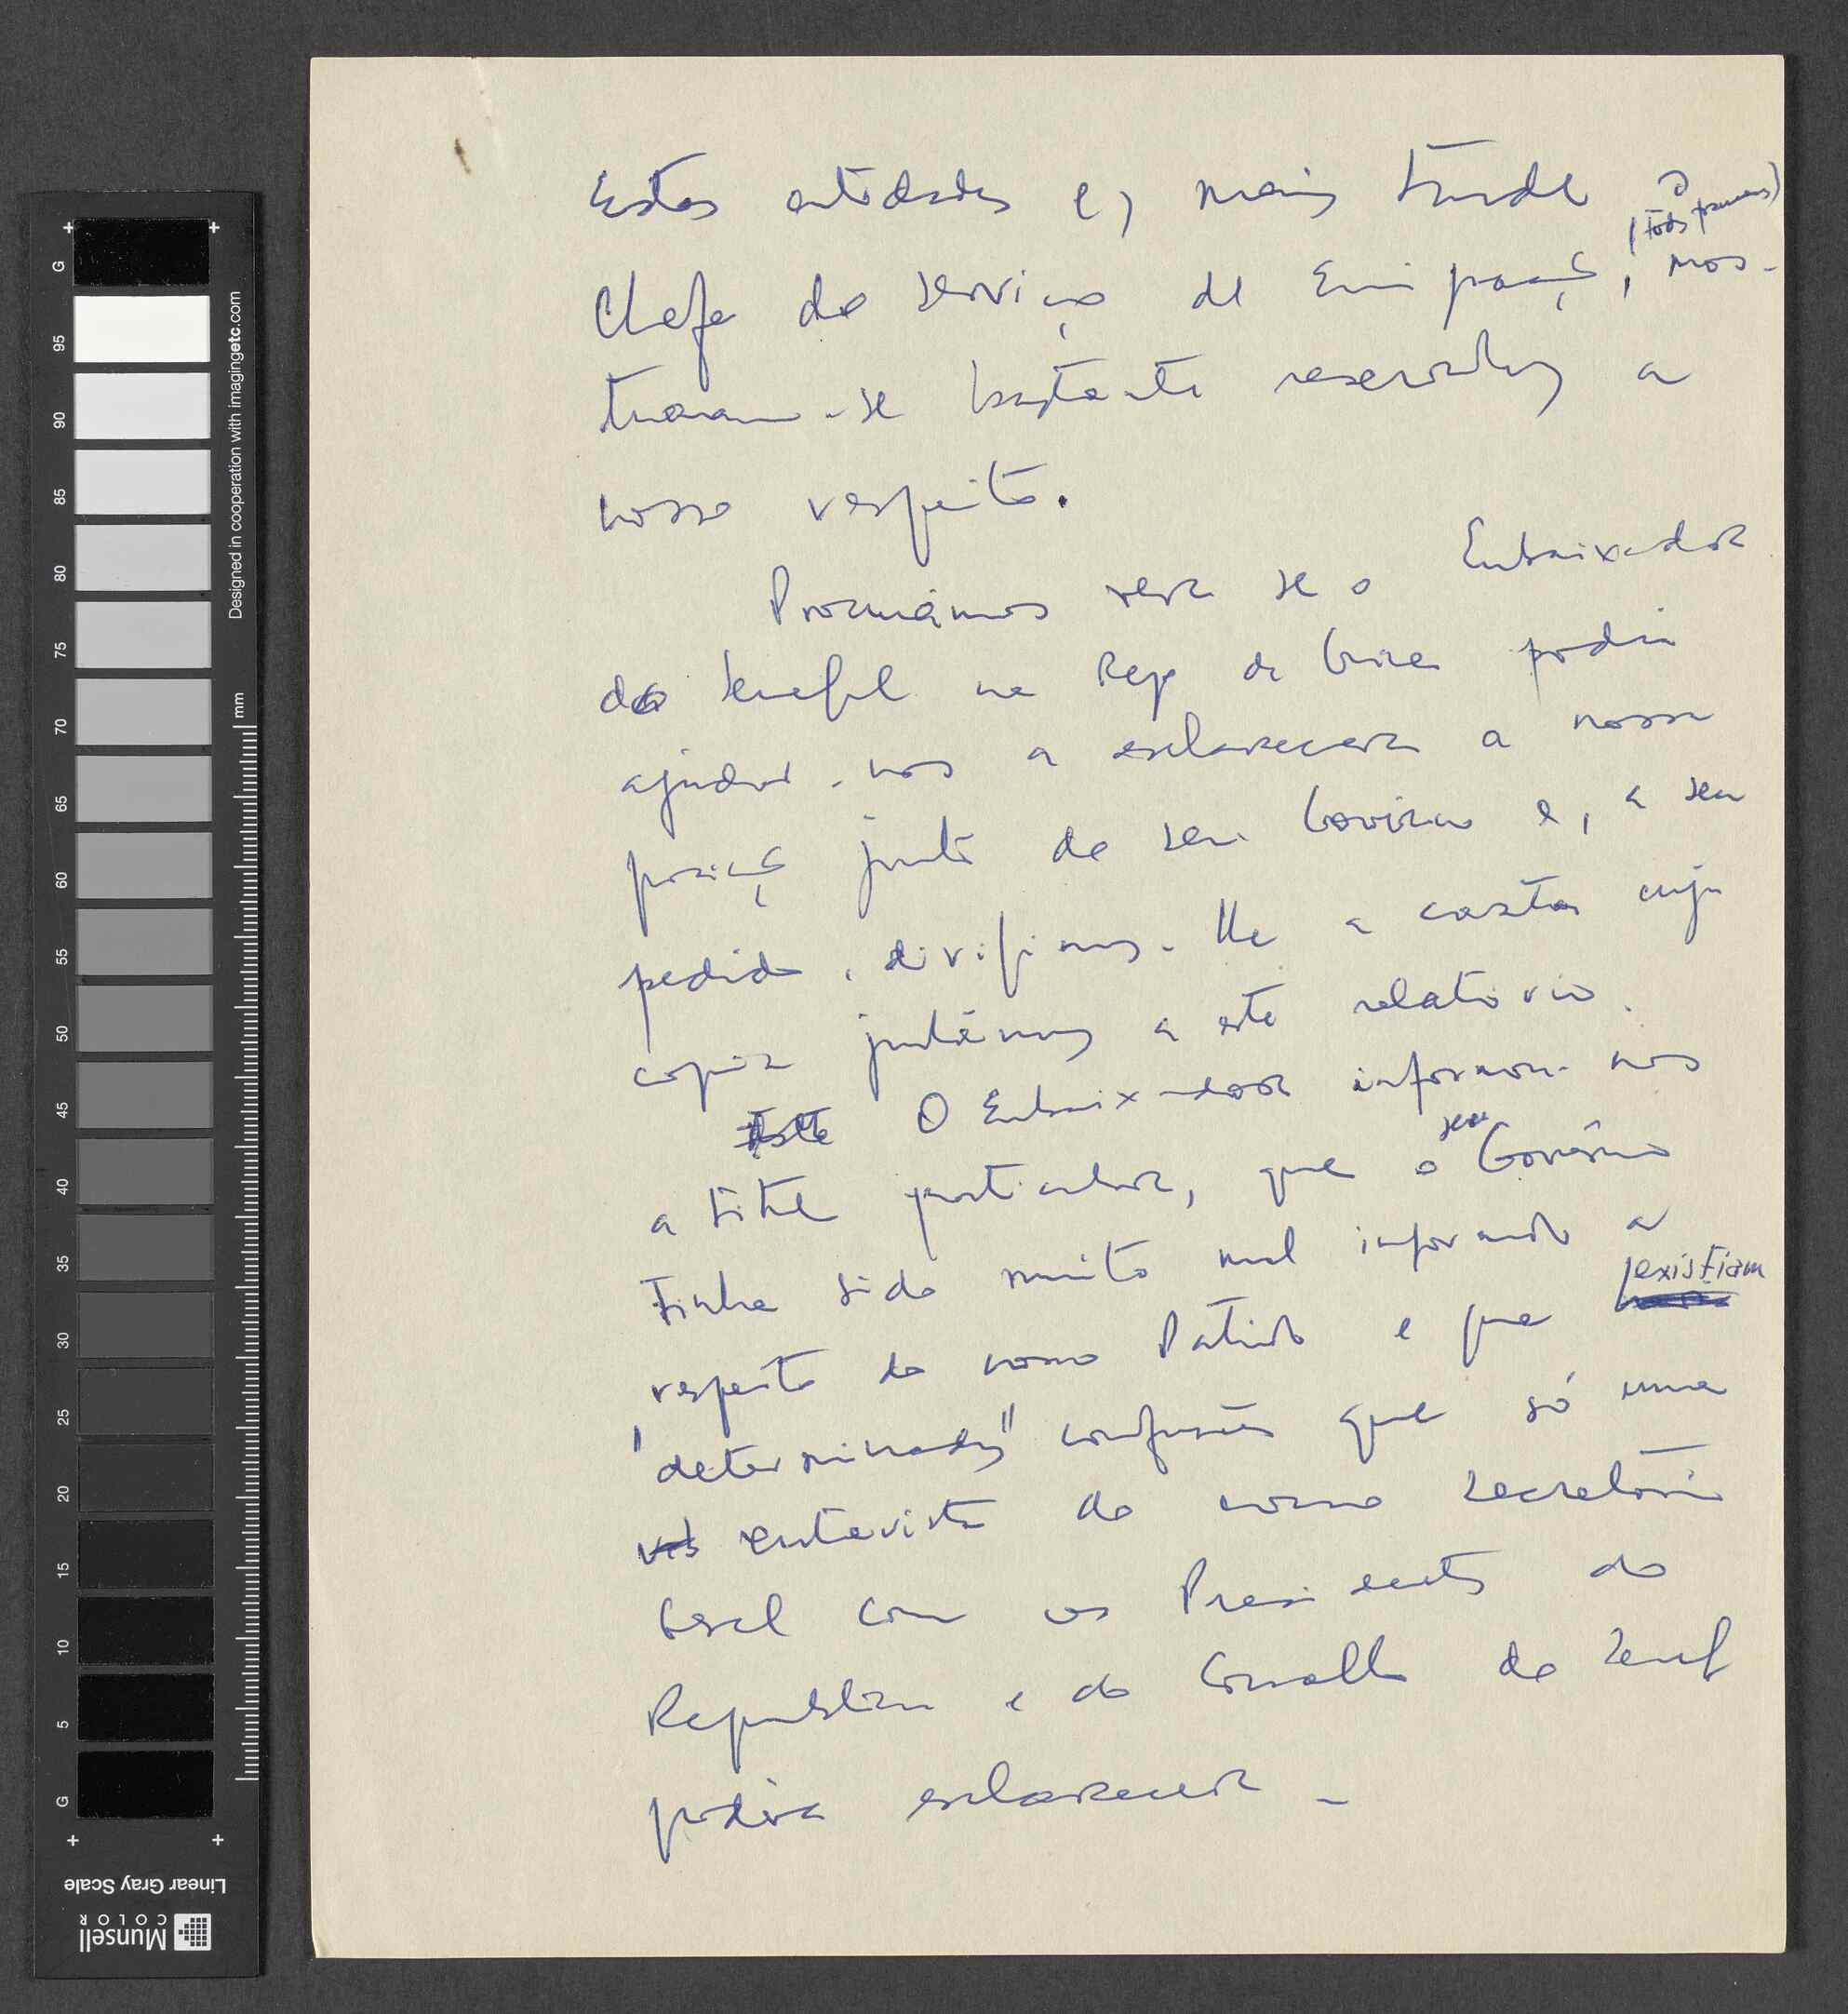 Estas entidades e, mais tarde o
(todos franceses)
Chefe do serviço de Emigração, mos-
traram-se bastante reservadas a
nosso respeito.
Procurámos ver se o Embaixador
do Senegal na Rep da Guiné podia
ajudar-nos a esclarecer a nossa
posição junto do seu Govêrno e, a seu
pedido, dirigimos-lhe a carta cuja
copia juntámos a este relatório.
Este O Embaixador informou-nos
a title particular, que o seu Govêrno
tinha sido muito mal informado a
respeito do nosso Partido e que existiam
"determinadas" confusões que só uma
entrevista do nosso secretário
Geral com os Presidentes da
Republica e do Conselho do Senegal
podia esclarecer -
G
95
90
85
80
75
70
65
60
55
50
45
40
35
30
25
20
15
10
5
G
mm
Designed in cooperation with imagingetc.com
Linear Gray Scale
Munsell
COLOR